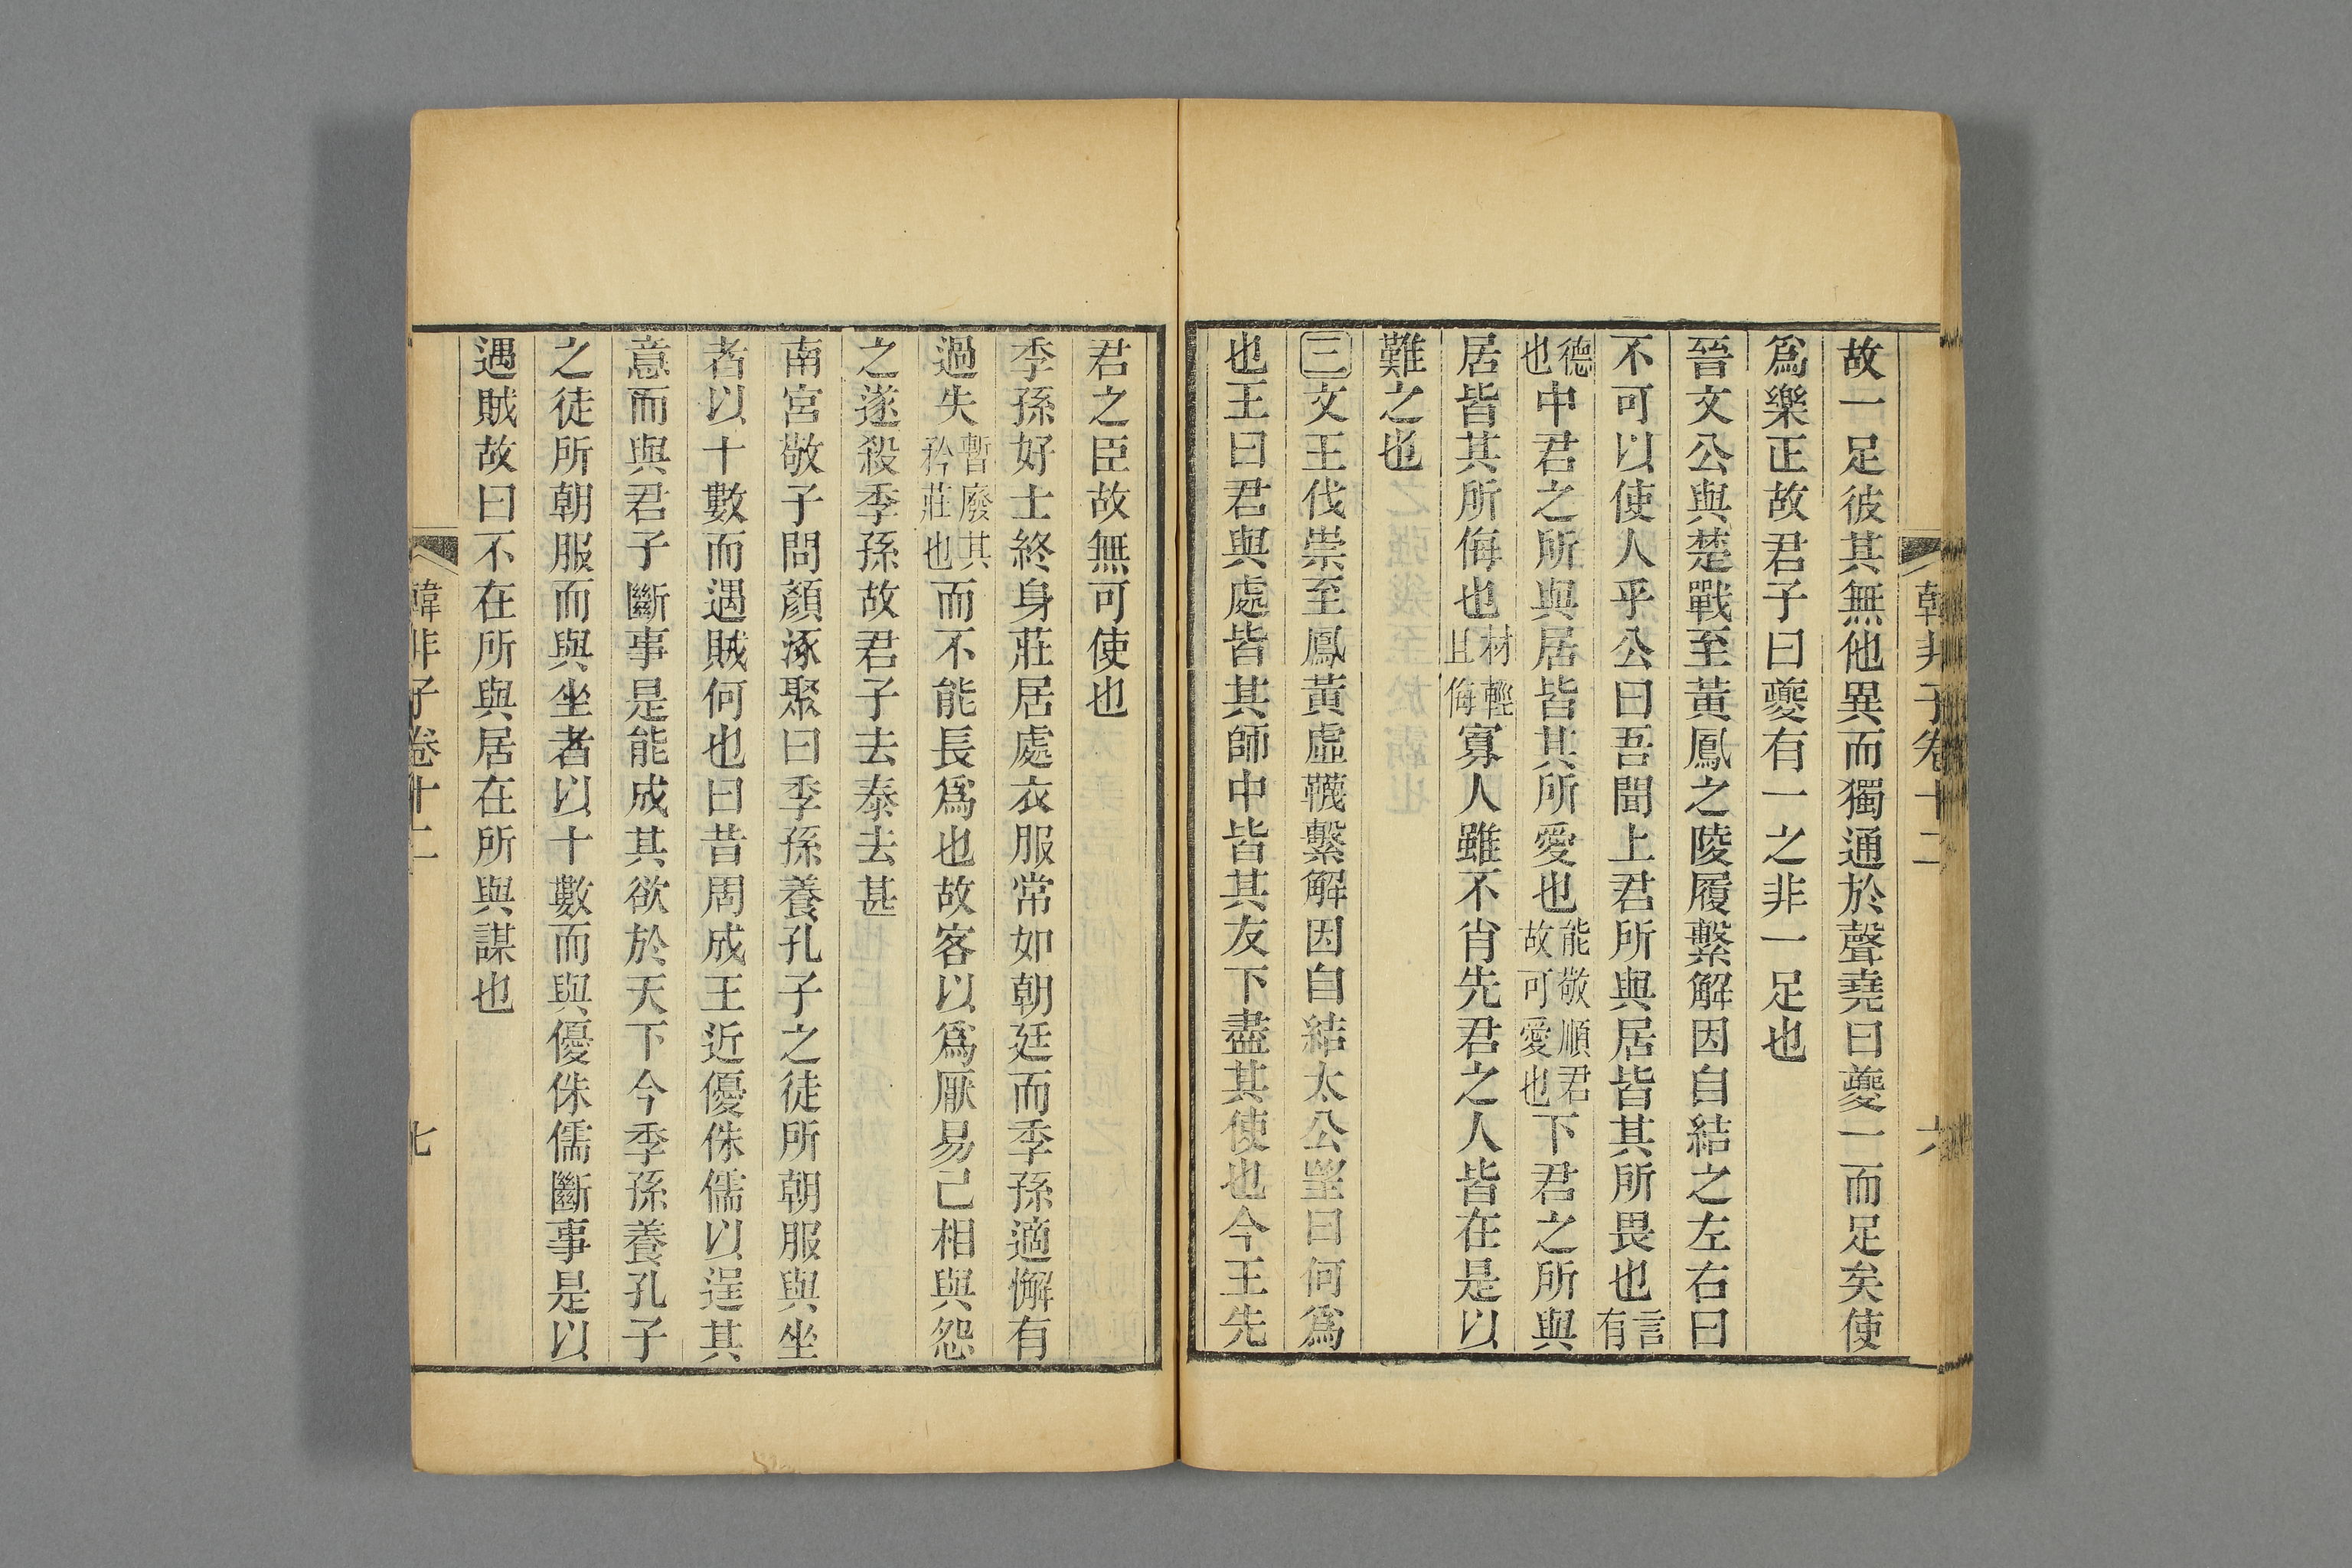 韓非子卷十二 六
故一足彼其無他異而獨通於聲堯曰夔一而足矣使
爲樂正故君子曰夔有一之非一足也
晉文公與楚戰至黃鳳之陵履繫解因自結之左右曰
不可以使人乎公曰吾聞上君所與居皆其所畏也言有
德也中君之所與居皆其所愛也能敬順君故可愛也下君之所與
居皆其所侮也材輕且侮寡人雖不肖先君之人皆在是以
難之也
三文王伐崇至鳳黃虛韈繫解因自結太公望曰何爲
也王曰君與處皆其師中皆其友下盡其使也今王先
君之臣故無可使也
季孫好士終身莊居處衣服常如朝廷而季孫適懈有
過失暫廢其矜莊也而不能長爲也故客以爲厭易己相與怨
之遂殺季孫故君子去泰去甚
南宮敬子問顏涿聚曰季孫養孔子之徒所朝服與坐
者以十數而遇賊何也曰昔周成王近優侏儒以逞其
意而與君子斷事是能成其欲於天下今季孫養孔子
之徒所朝服而與坐者以十數而與優侏儒斷事是以
遇賊故曰不在所與居在所與謀也
韓非子卷十二 七